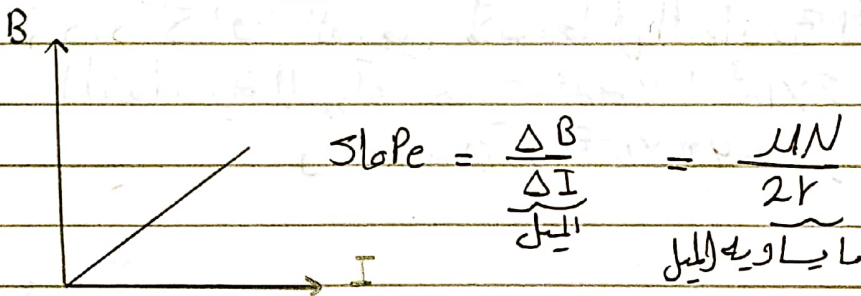 B
Slope = ΔB / ΔI = μN / 2r
الميل
ما يساويه الميل
I